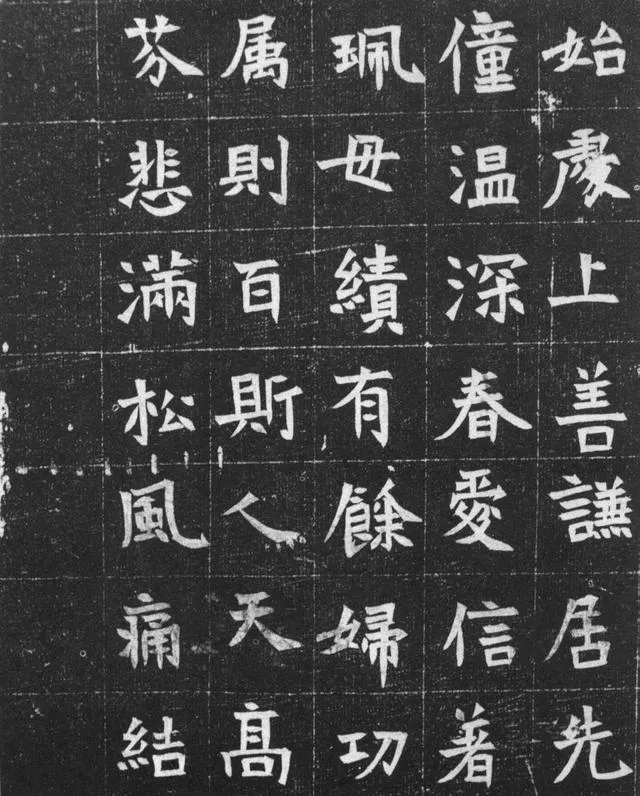 始處上善謙居先
僮温深春愛信著
珮毋績有餘婦功
属則百斯人天高
芬悲滿松風痛結